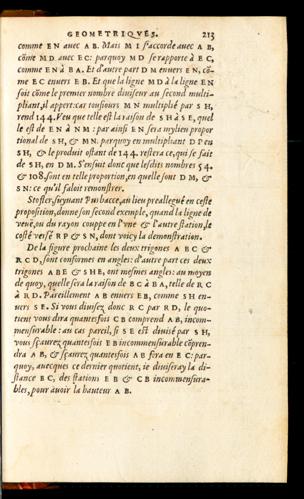 GEOMETRIQVES. 213
comme EN auec AB. Mais MI s'accorde auec AB,
cõme MD auec EC: parquoy MD se rapporte à EC,
comme EN à BA. Et d'autre part DM enuers EN, cõ-
me EC enuers EB. Et que la ligne MD à la ligne EN
soit cõme le premier nombre diuiseur au second multi-
pliant, il appert: car tousiours MN multiplié par SH,
rend 144. Veu que telle est la raison de SH à SE, quel
le est de EN à NM: par ainsi EN sera moyen propor
tional de SH, & MN. parquoy en multipliant DP en
SH, & le produit ostant de 144. restera ce, qui se fait
de SH, en DM. S'ensuit donc que lesdits nombres 54.
& 108. sont en telle proportion, en quelle sont DM, &
SN: ce qu'il faloit remonstrer.
Stofler, suyuant Purbacce, au lieu preallegué en ceste
proposition, donne son second exemple, quand la ligne de
veuë, ou du rayon couppe en l'vne & l'autre station, le
costé versé RP & SN, dont voicy la demonstration.
De la figure prochaine les deux trigones ABC &
RCD, sont conformes en angles: d'autre part ces deux
trigones ABE & SHE, ont mesmes angles: au moyen
de quoy, quelle sera la raison de BC à BA, telle de RC
à RD. Pareillement AB enuers EB, comme SH en-
uers SE. Si vous diuisez donc RC par RD, le quo-
tient vous dira quantesfois CB comprend AB, incom-
mensurable: au cas pareil, si SE est diuisé par SH,
vous sçaurez quantesfois EB incommensurable cõpren-
dra AB, & sçaurez quantesfois AB sera en EC: par-
quoy, auecques ce dernier quotient, ie diuiseray la di-
stance EC, des stations EB & CB incommensura-
bles, pour auoir la hauteur AB.